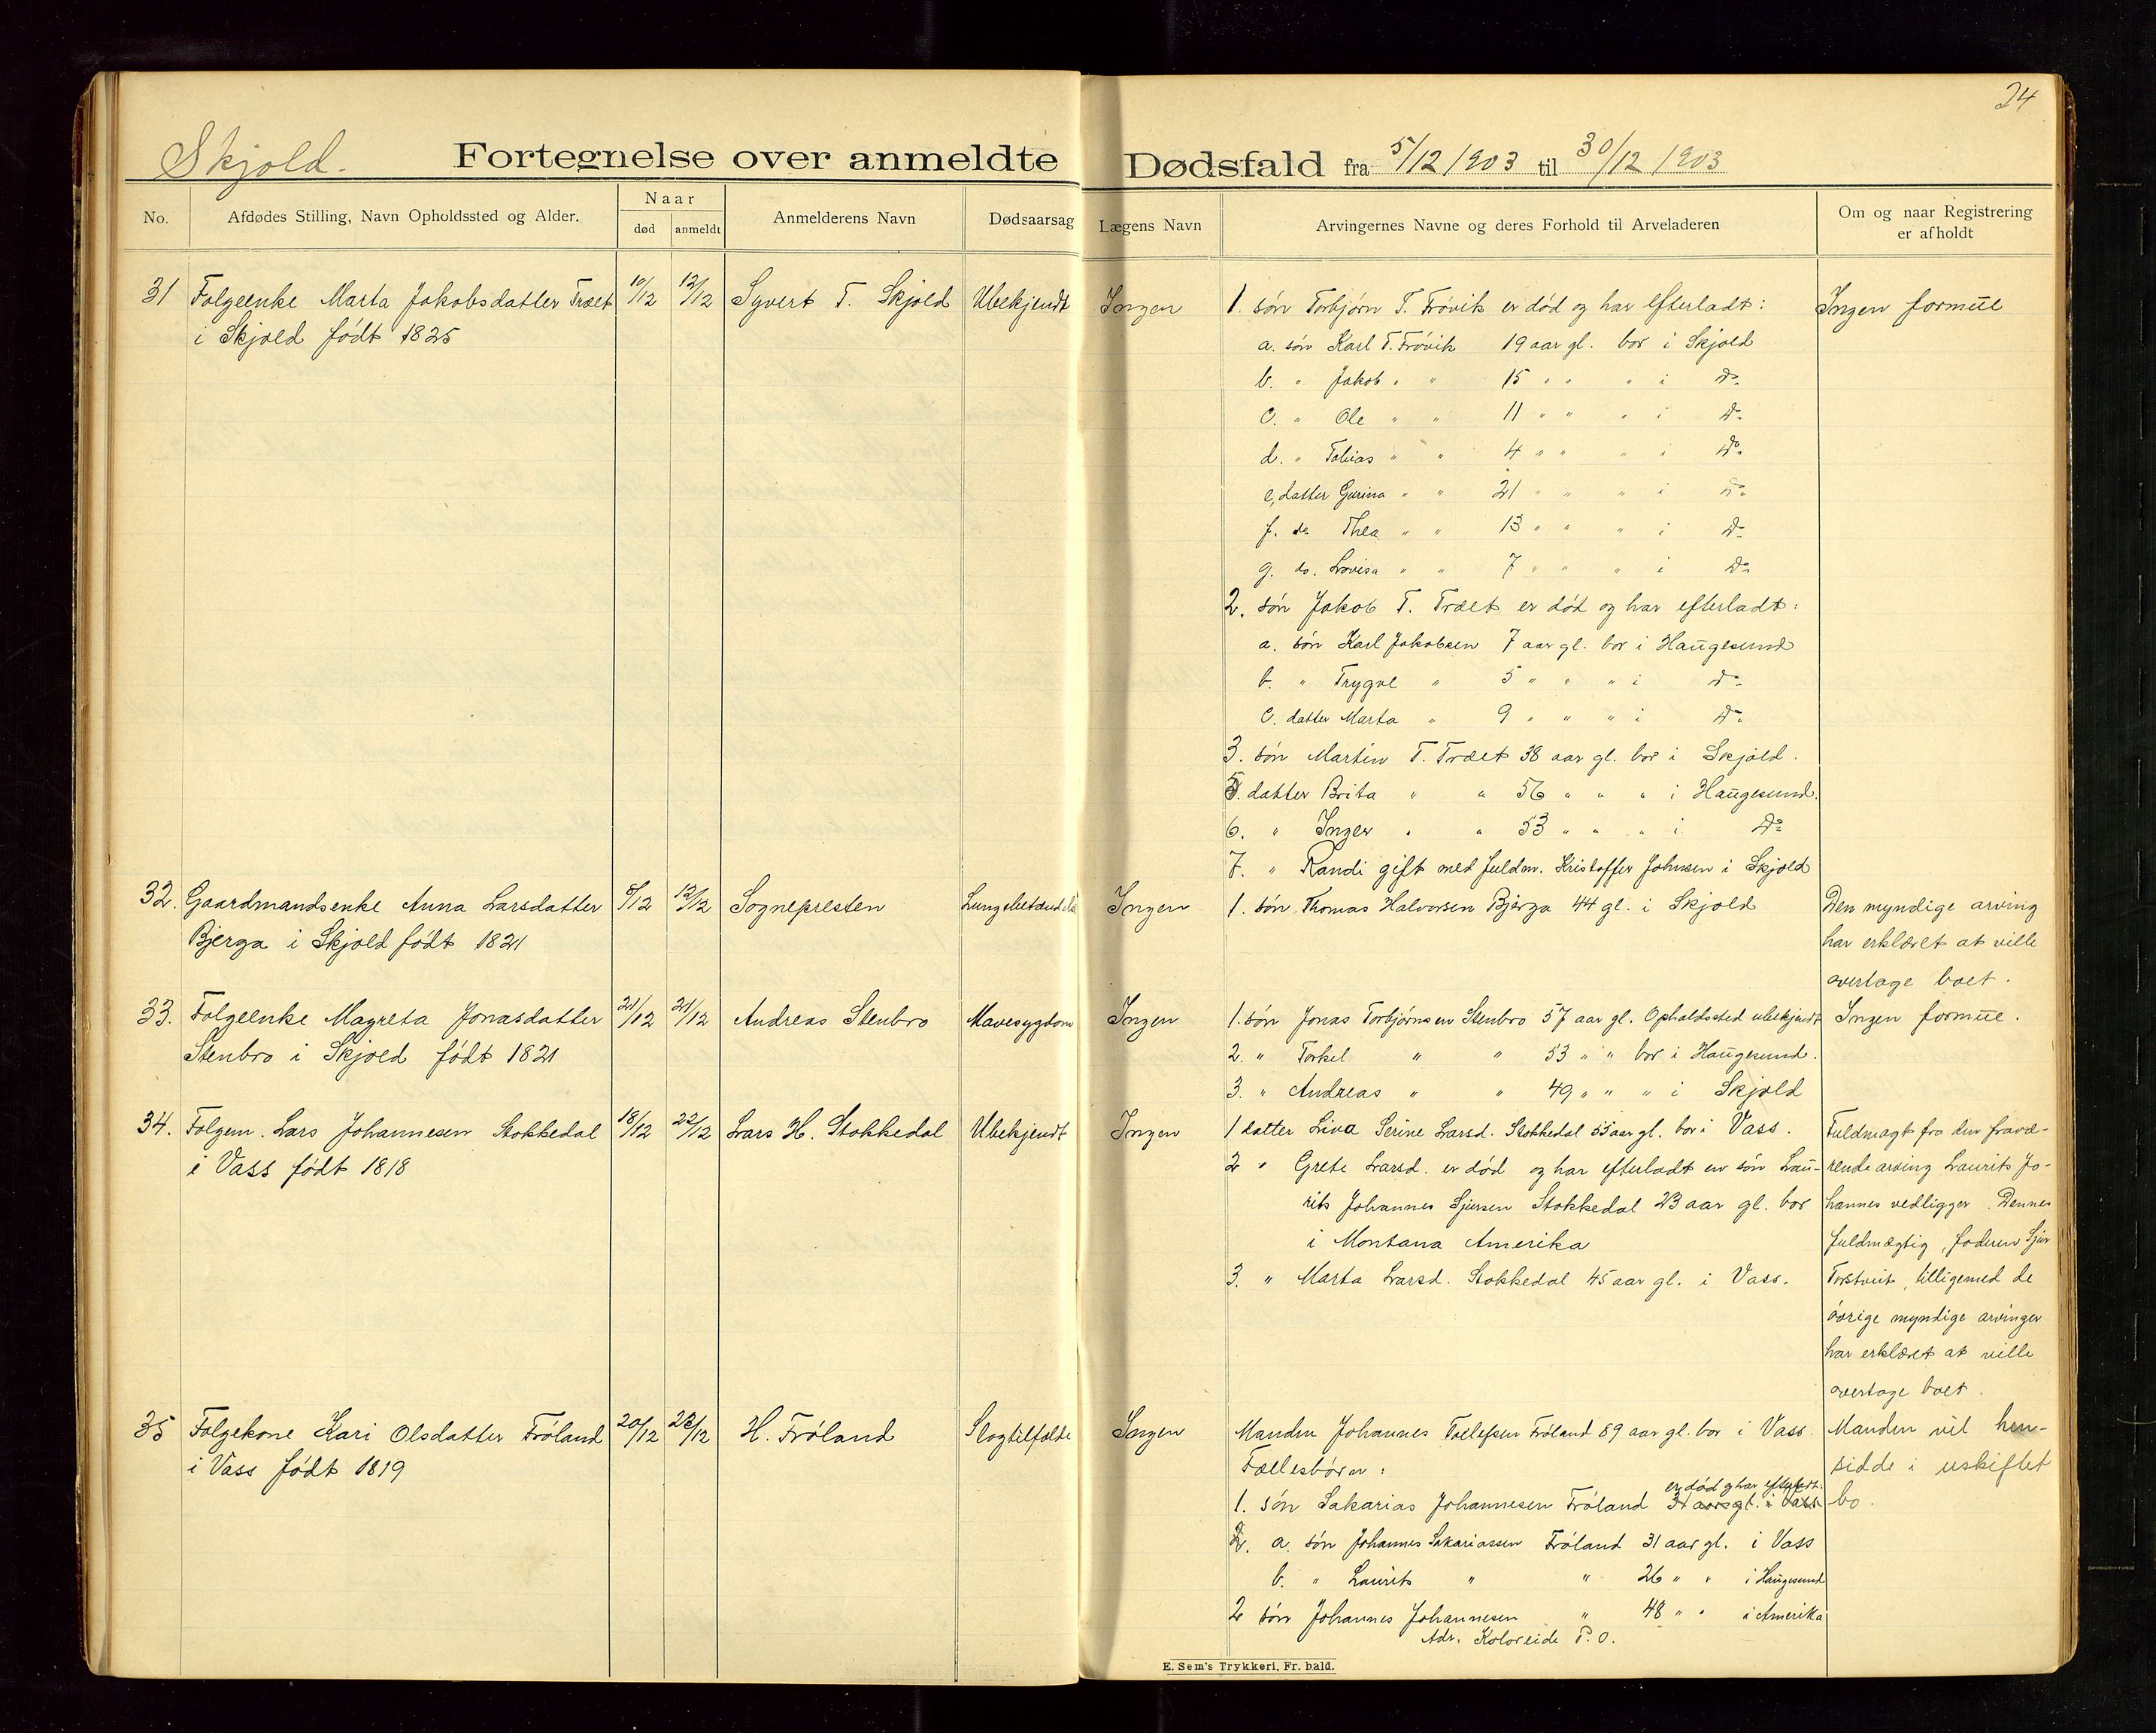 24
Skjold. Fortegnelse over anmeldte Dødsfald fra 5/12 1903 til 30/12 1903
No. Afdødes Stilling, Navn Opholdssted og Alder. Naar død anmeldt Anmelderens Navn Dødsaarsag Lægens Navn Arvingernes Navne og deres Forhold til Arveladeren Om og naar Registrering er afholdt
31 Folgeenke Marta Jakobsdatter Træet 10/12 12/12 Syvert T. Skjold Ubekjendt Ingen 1. søn Torbjørn T. Frøvik er død og har efterladt: Ingen formue
i Skjold født 1825 a. søn Karl T. Frøvik 19 aar gl. bor i Skjold
b. " Jakob " " 15 " " " i Do
c. " Ole " " 11 " " " i Do
d. " Tobias " " 4 " " " i Do
e, datter Gurina " " 21 " " " i Do
f. do Thea " " 13 " " " i Do
g. do. Lovisa " " 7 " " " i Do
2. søn Jakob T. Træet er død og har efterladt:
a. søn Karl Jakobsen 7 aar gl. bor i Haugesund
b. " Trygve " 5 " " " i Do
c. datter Marta " 9 " " " i Do
3. søn Martin T. Træet 38 aar gl. bor i Skjold.
5. datter Brita " " 56 " " " i Haugesund.
6. " Inger " " 53 " " " i Do
7. " Randi gift med fuldm. Kristoffer Johnsen i Skjold
32. Gaardmandsenke Anna Larsdatter 5/12 12/12 Sognepresten Lungebetændelse Ingen 1. søn Thomas Halvorsen Bjerga 44 gl. i Skjold Den myndige arving
Bjerga i Skjold født 1821 har erklæret at ville
overtage boet.
33. Folgeenke Magreta Jonasdatter 21/12 21/12 Andreas Stenbro Mavesygdom Ingen 1. søn Jonas Torbjørnsen Stenbro 57 aar gl. Opholdssted ubekjendt Ingen formue.
Stenbro i Skjold født 1821 2. " Torkel " " 53 " " bor i Haugesund.
3. " Andreas " " 49 " " " i Skjold
34. Folgem. Lars Johannesen Stokkedal 18/12 22/12 Lars H. Stokkedal Ubekjendt Ingen 1 datter Liva Serine Larsd. Stokkedal 55 aar gl. bor i Vass. Fuldmagt fra den fravæ-
i Vass født 1818 2 " Grete Larsd. er død og har efterladt en søn Lau- rende arving Laurits Jo-
rits Johannes Sjursen Stokkedal 23 aar gl. bor hannes vedligger. Dennes
i Montana Amerika fuldmægtig, faderen Sjur
3. " Marta Larsd. Stokkedal 45 aar gl. i Vass. Torstveit, tilligemed de
øvrige myndige arvinger
har erklæret at ville
overtage boet.
35 Folgekone Kari Olsdatter Frøland 20/12 22/12 H. Frøland Slagtilfælde Ingen Manden Johannes Tollefsen Frøland 89 aar gl. bor i Vass. Manden vil hen-
i Vass født 1819 Fællesbørn: sidde i uskiftet
er død og har efterladt:
1. søn Sakarias Johannesen Frøland 31 aar gl. i Vass bo.
a. søn Johannes Sakariassen Frøland 31 aar gl. i Vass
b. " Laurits " " 26 " " i Haugesund
2 søn Johannes Johannesen " 48 " " i Amerika
Adr. P.O.
E. Sem's Trykkeri, Fr. hald.